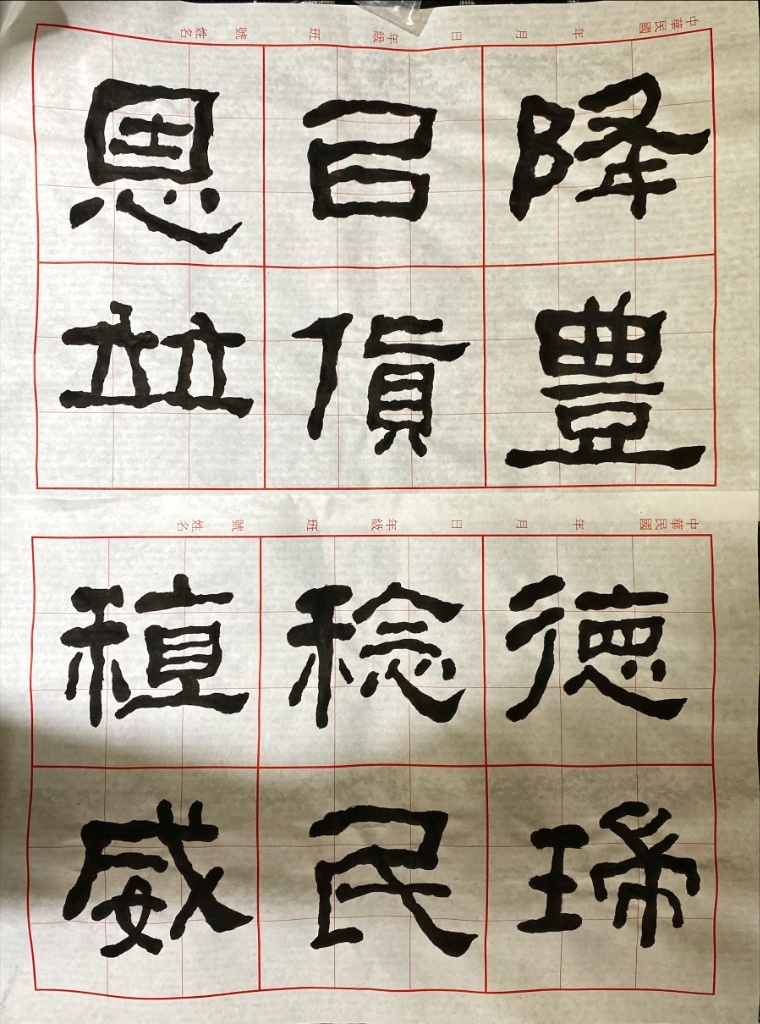 中華民國　年　月　日　年級　班　號　姓名
降豐
㠯
恩竝
中華民國　年　月　日　年級　班　號　姓名
德
稔民
稙威